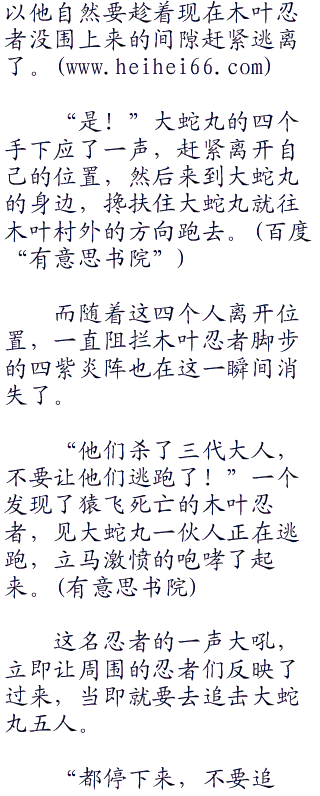 以他自然要趁着现在木叶忍
者没围上来的间隙赶紧逃离
了。(www.heihei66.com)
“是！”大蛇丸的四个
手下应了一声，赶紧离开自
己的位置，然后来到大蛇丸
的身边，搀扶住大蛇丸就往
木叶村外的方向跑去。(百度
“有意思书院”)
而随着这四个人离开位
置，一直阻拦木叶忍者脚步
的四紫炎阵也在这一瞬间消
失了。
“他们杀了三代大人，
不要让他们逃跑了！”一个
发现了猿飞死亡的木叶忍
者，见大蛇丸一伙人正在逃
跑，立马激愤的咆哮了起
来。(有意思书院)
这名忍者的一声大吼，
立即让周围的忍者们反映了
过来，当即就要去追击大蛇
丸五人。
“都停下来，不要追